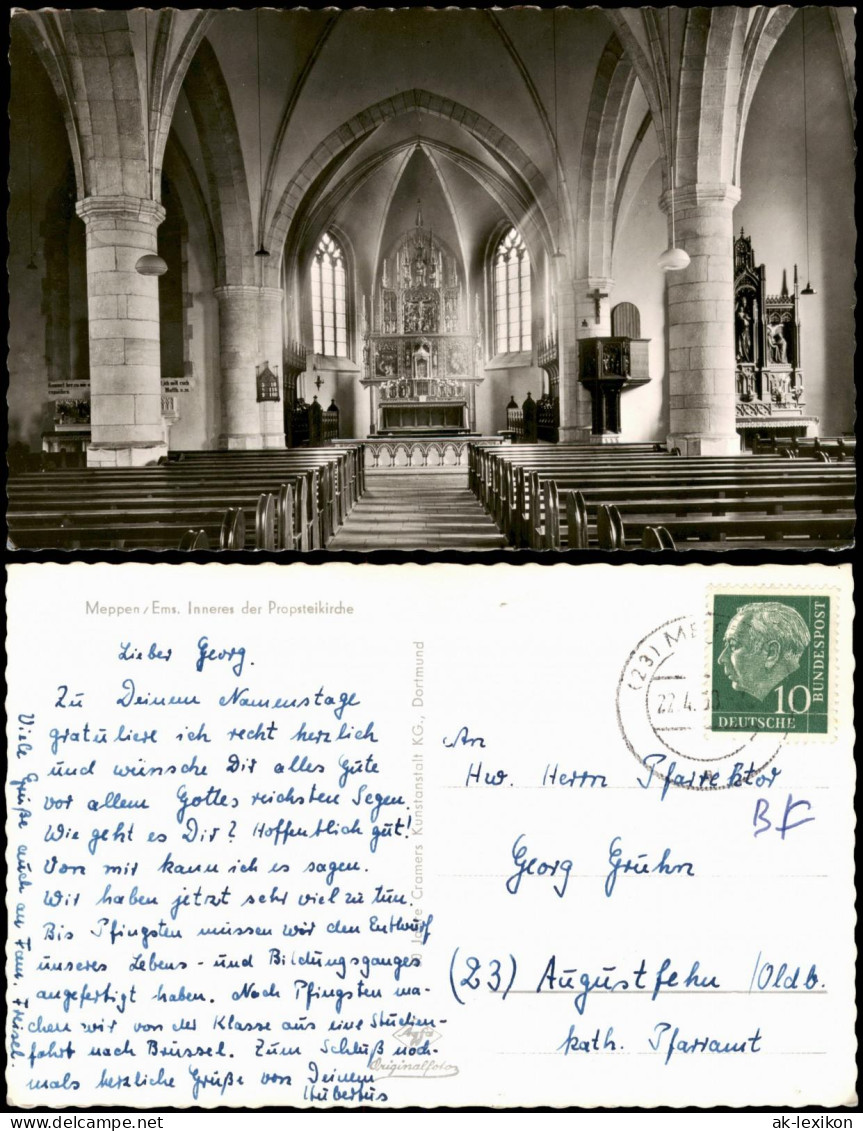 Meppen/Ems. Inneres der Propsteikirche
Lieber Georg.
Zu Deinem Namenstage
gratuliere ich recht herzlich
und wünsche Dir alles Gute
vor allem Gottes reichsten Segen.
Wie geht es Dir? Hoffentlich gut!
Von mir kann ich es sagen.
Wir haben jetzt sehr viel zu tun.
Bis Pfingsten müssen wir den Entwurf
unseres Lebens- und Bildungsganges
angefertigt haben. Nach Pfingsten ma-
chen wir von der Klasse aus eine Studien-
fahrt nach Brüssel. Zum Schluß noch-
mals herzliche Grüße von Deinem
Hubertus
Viele Grüße auch an Fam.
Jahre Cramers Kunstanstalt KG., Dortmund
Agfa
Originalfoto
(23) ME
22.4.
10
DEUTSCHE
BUNDESPOST
An
Hw. Herrn Pfarrektor
Georg Gruhn
(23) Augustfehn /Oldb.
kath. Pfarramt
ak-lexikon
www.ansichtskarten-lexikon.de